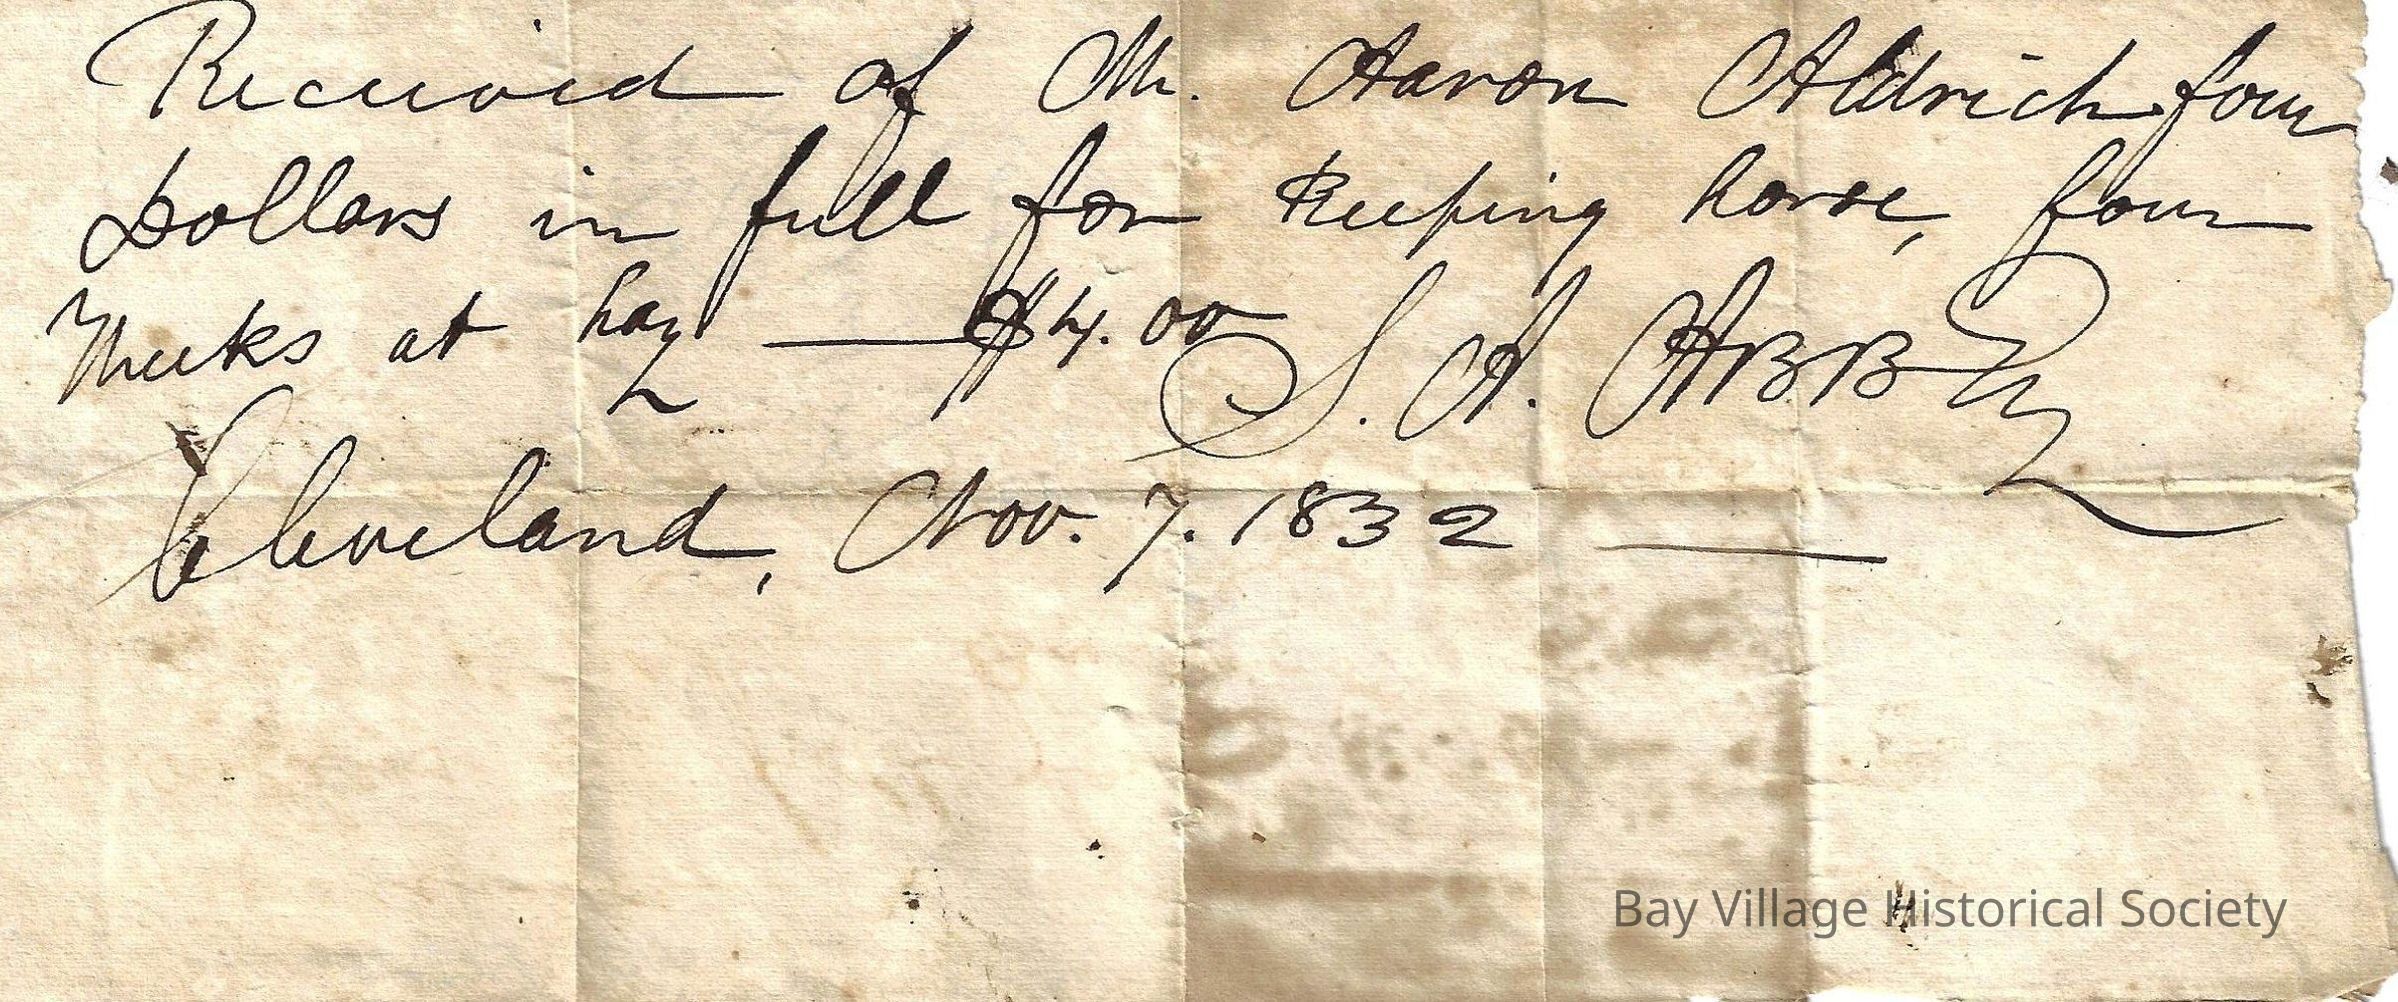 Received of Mr. Aaron Aldrich four
Dollars in full for Keeping horse, four
Weeks at hay — $4.00 S. A. ABBEY
Cleveland, Nov. 7. 1832 —
Bay Village Historical Society